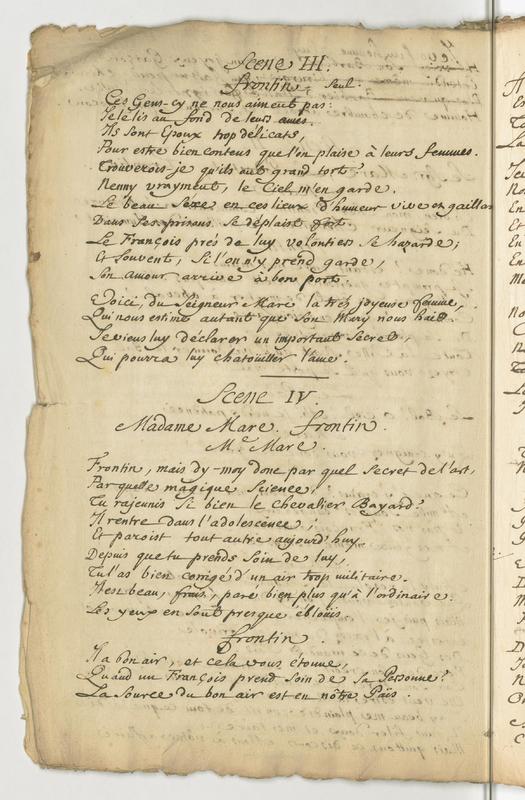 Scene III.
Frontin, seul.
Ces Gens-cy ne nous aiment pas:
Je le lis au fond de leurs ames.
Ils sont Epoux trop délicats,
Pour estre bien contens que l'on plaise à leurs femmes.
Trouverois-je qu'ils ont grand tort?
Nenny vrayment, le Ciel m'en garde.
Le beau Sexe en ces lieux d'humeur vive et gaillar
Dans ses prisons se déplaist fort.
Le François prés de luy volontiers se hazarde;
Et souvent, si l'on n'y prend garde,
Son amour arrive à bon port.
Voici, du Seigneur Mare la tres joyeuse femme,
Qui nous estime autant que son Mary nous hait.
Je viens luy déclarer un important Secret,
Qui pourra luy chatouiller l'ame.
Scene IV.
Madame Mare. Frontin.
Me. Mare.
Frontin, mais dy-moy donc par quel secret de l'art,
Par quelle magique Science,
Tu rajeunis si bien le Chevalier Bayard?
Il rentre dans l'adolescence;
Et paroist tout autre aujourd'huy,
Depuis que tu prends soin de luy,
Tu l'as bien corrigé d'un air trop militaire.
Il est beau, frais, paré bien plus qu'à l'ordinaire.
Les yeux en sont presque éblouis.
Frontin.
Il a bon air, et cela vous étonne,
Quand un François prend soin de sa Personne?
La Source du bon air est en nôtre Païs.